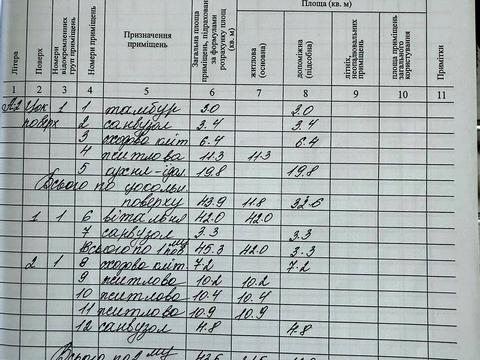 Площа (кв. м)
Літера
Поверх
Номери відокремлених груп приміщень
Номери приміщень
Призначення приміщень
Загальна площа приміщень, підрахована за формулами розрахунку площ (кв. м)
житлова (основна)
допоміжна (підсобна)
літніх, неопалювальних приміщень
площа приміщень загального користування
Примітки
1 2 3 4 5 6 7 8 9 10 11
А2 цок 1 1 тамбур 3.0 3.0
поверх 2 санвузол 3.4 3.4
3 6.4 6.4
4 житлова 11.3 11.3
5 кухня-їдал 19.8 19.8
Всього по цокольн.
поверху 43.9 32.6
1 1 6 вітальня 42.0 42.0
7 санвузол 3.3 3.3
Всього по 1 му пов. 45.3 42.0 3.3
2 1 8 7.2 7.2
9 житлова 10.2 10.2
10 житлова 10.4 10.4
11 житлова 10.9 10.9
12 санвузол 4.8 4.8
Всього по